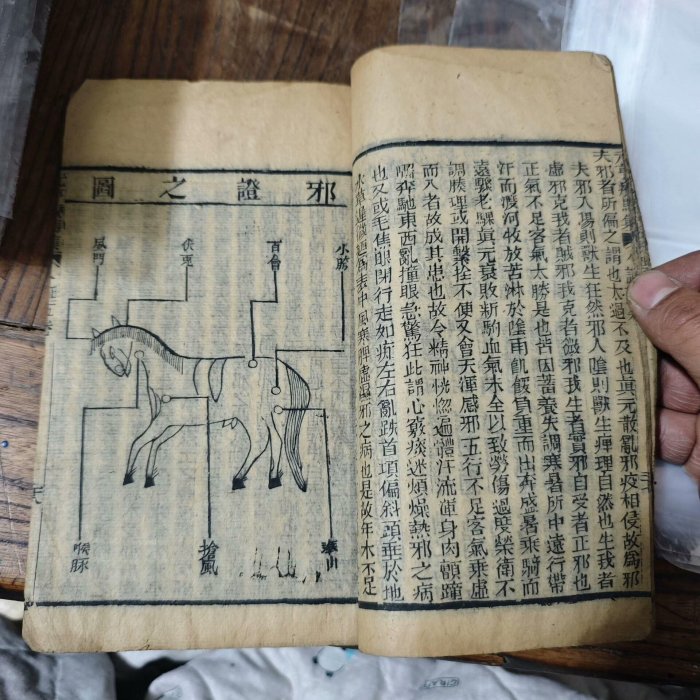 夫邪者所偏之謂也太過不及也眞元散亂邪疫相侵故爲邪
夫邪入陽則獸生狂然邪入陰則獸生痺理自然也生我者
虛邪克我者賊邪我克者微邪我生者實邪自受者正邪也
正氣不足客氣太勝是也皆因畜養失調寒暑所中遠行帶
汗而渡河牧放苦淋於陰雨飢假負重而出奔盛暑乘騎而
遠驟老驥眞元衰敗新駒血氣未全以致勞傷過度榮衛不
調腠理或開繫拴不便又會天運感邪五行不足客氣乗虛
而入者故成其患也故令精神恍惚遍體汗流渾身肉顫蹱
蹄奔馳東西亂撞眼急驚狂此謂心竅痰迷煩燥熱邪之病
也又或毛焦眼閉行走如痴左右亂跌首項偏斜頭垂於地
風寒脾虛濕邪之病也是故年木不足
邪證之圖
小胯
百會
伏兎
風門
喉脉
搶風